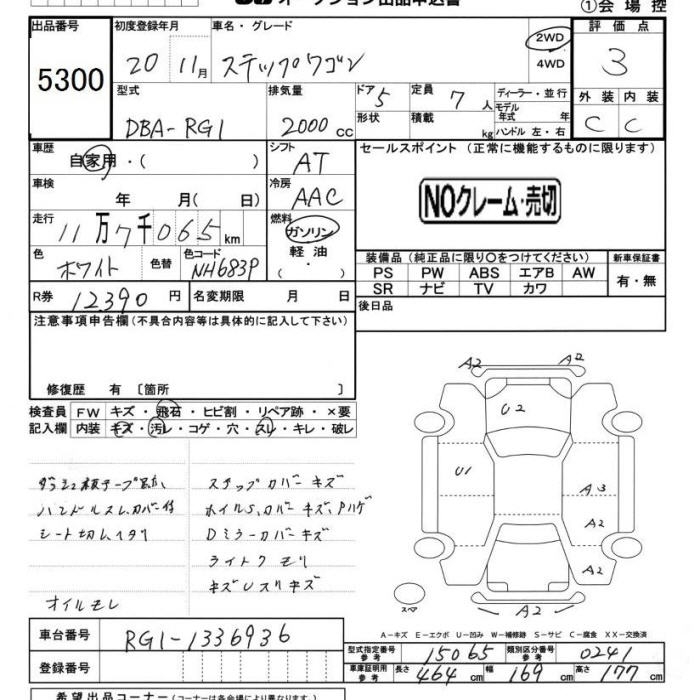 オークション出品申込書
①会場控
出品番号
5300
初度登録年月
20 11月
車名・グレード
ステップワゴン
2WD
4WD
評価点
3
型式
DBA-RG1
排気量
2000cc
ドア 5
形状
定員 7人
積載 kg
ディーラー・並行
モデル年式 年
ハンドル 左・右
外装 内装
C C
車歴
自家用・( )
シフト
AT
セールスポイント (正常に機能するものに限ります)
NOクレーム・売切
車検
年 月( 日)
冷房
AAC
走行
11万7千065km
燃料
ガソリン
軽油
・
色
ホワイト
色替
色コード
NH683P
装備品(純正品に限り〇をつけてください)
新車保証書
PS PW ABS エアB AW
SR ナビ TV カワ
有・無
R券 12390円
名変期限 月 日
後日品
注意事項申告欄(不具合内容等は具体的に記入して下さい)
修復歴 有 [箇所 ]
検査員記入欄
FW キズ・飛石・ヒビ割・リペア跡・×要
内装 キズ・汚レ・コゲ・穴・スレ・キレ・破レ
ハンドルスレ,カバー付
オイルモレ
ステップカバーキズ
ホイルS,カバーキズ,Pハゲ
Dミラーカバーキズ
ライトクモリ
A2
A2
U2
U1
A3
A2
A2
A2
スペア
A-キズ E-エクボ U-凹み W-補修跡 S-サビ C-腐食 XX-交換済
車台番号
RG1-1336936
登録番号
型式指定番号 参考 15065
類別区分番号 参考 0241
車庫証明用 参考 長さ 464cm 幅 169cm 高さ 177cm
希望出品コーナー(コーナー名は各会場により異なります)